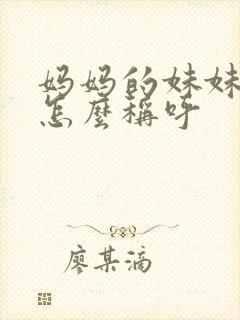 妈妈的妹妹
怎麼稱呼
廖某滴